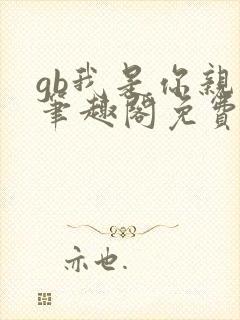 gb我是你親
筆趣閣免費
亦也.